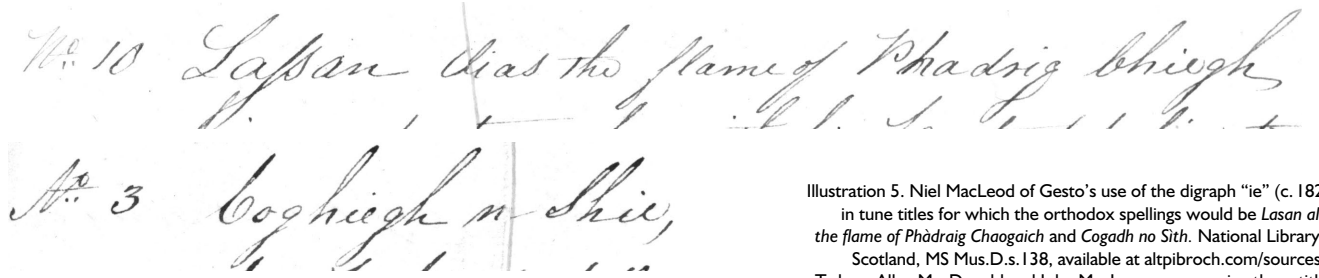 No. 10 Lassan dias the flame of Phadrig Chiegh
No. 3 Coghiegh n Shie,
Illustration 5. Niel MacLeod of Gesto's use of the digraph “ie” (c. 182
in tune titles for which the orthodox spellings would be Lasan al
the flame of Phàdraig Chaogaich and Cogadh no Sìth. National Library
Scotland, MS Mus.D.s.138, available at altpibroch.com/sources